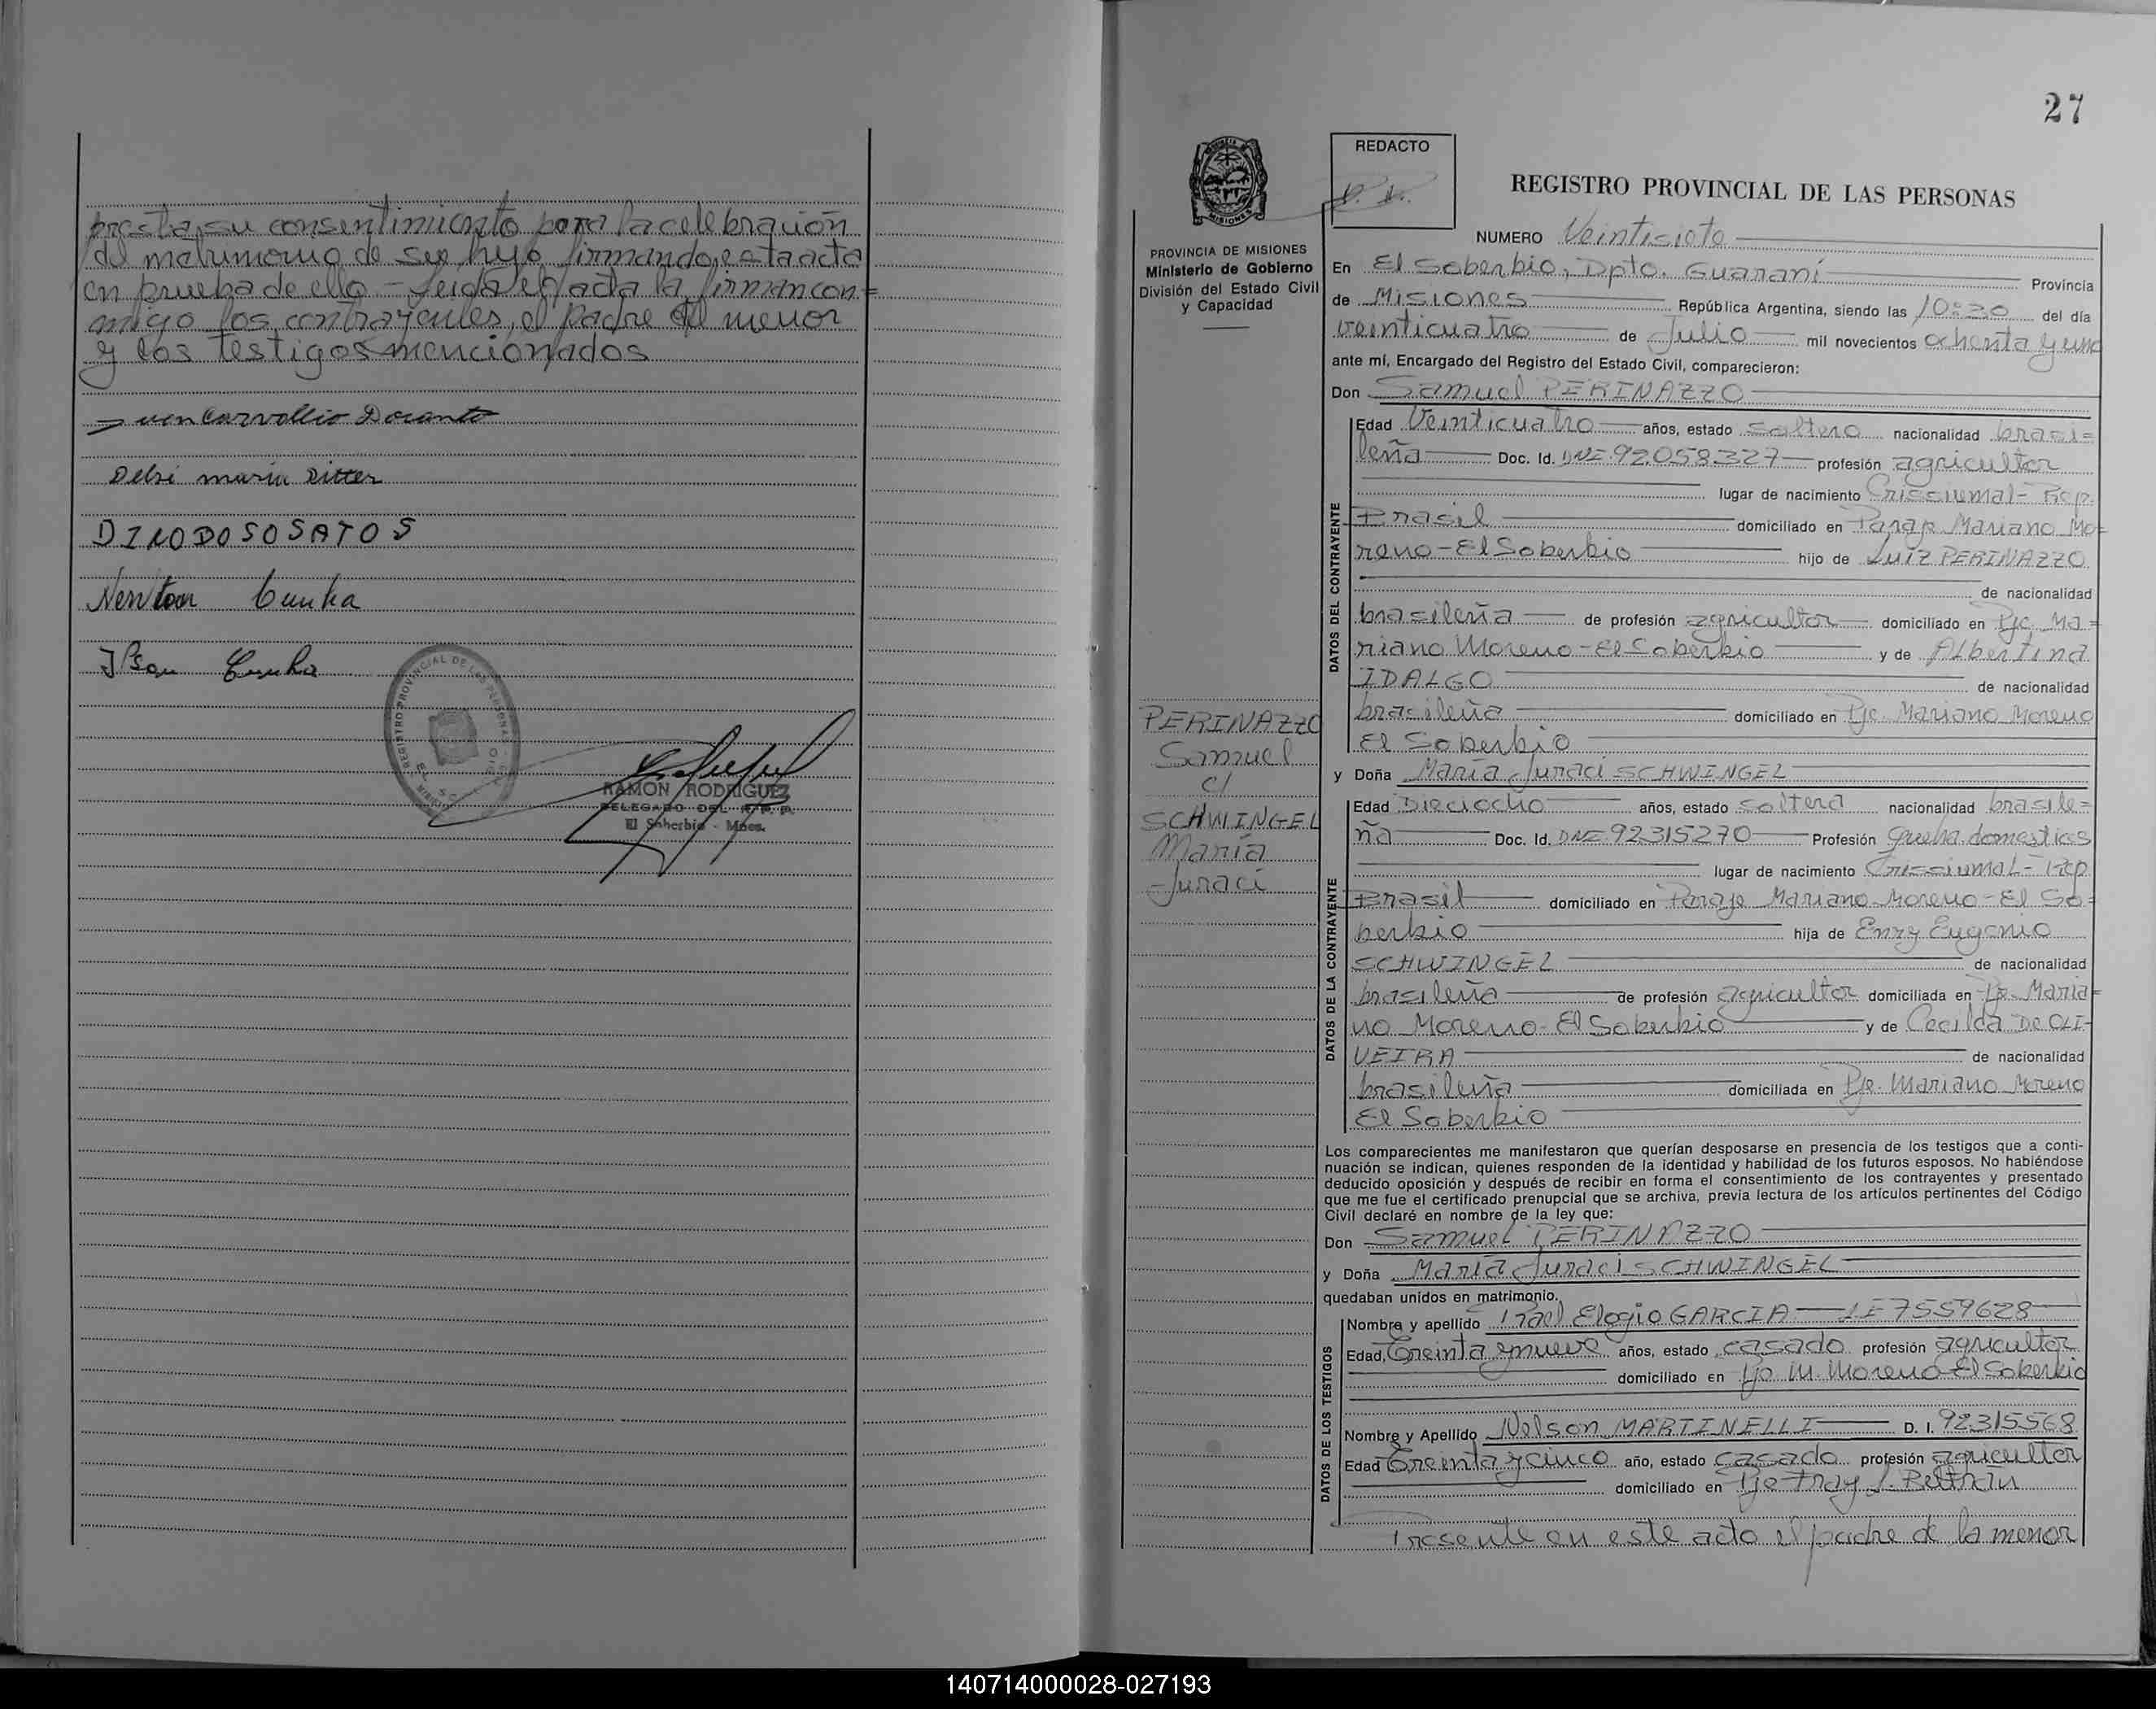 presta su consentimiento para la celebración
del matrimonio de su hijo firmando esta acta
en prueba de ello - Leida el acta la firman con=
migo los contrayentes, el padre del menor
y los testigos mencionados
Delsi maria Ritter
DINODOSOSATOS
Newton Cunha
Ilson Cunha
REGISTRO PROVINCIAL DE LAS PERSONAS
RAMON RODRIGUEZ
DELEGADO DEL R.P.P.
El Soberbio - Mnes.
27
REDACTO
REGISTRO PROVINCIAL DE LAS PERSONAS
PROVINCIA DE MISIONES
Ministerio de Gobierno
División del Estado Civil
y Capacidad
NUMERO Veintisiete
En El Soberbio, Dpto. Guaraní Provincia
de Misiones República Argentina, siendo las 10:30 del día
veinticuatro de Julio mil novecientos ochenta y uno
ante mí, Encargado del Registro del Estado Civil, comparecieron:
Don Samuel PERINAZZO
DATOS DEL CONTRAYENTE
Edad Veinticuatro años, estado soltero nacionalidad brasi=
leña Doc. Id. DNI 92.058.327 profesión agricultor
lugar de nacimiento Crissiumal - Rep.
Brasil domiciliado en Paraje Mariano Mo=
reno - El Soberbio hijo de Luiz PERINAZZO
de nacionalidad
brasileña de profesión agricultor domiciliado en Pje. Ma=
riano Moreno - El Soberbio y de Albertina
IDALGO de nacionalidad
brasileña domiciliado en Pje. Mariano Moreno
El Soberbio
PERINAZZO
Samuel
c/
SCHWINGEL
María
Juraci
y Doña María Juraci SCHWINGEL
DATOS DE LA CONTRAYENTE
Edad Dieciocho años, estado soltera nacionalidad brasile=
ña Doc. Id. DNI 92315270 Profesión queha. domesticos
lugar de nacimiento Crissiumal - Rep
Brasil domiciliado en Paraje Mariano Moreno - El So=
berbio hija de Enzy Eugenio
SCHWINGEL de nacionalidad
brasileña de profesión agricultor domiciliada en Pje. Maria=
no Moreno - El Soberbio y de Cecilda DE OLI-
VEIRA de nacionalidad
brasileña domiciliada en Pje. Mariano Moreno
El Soberbio
Los comparecientes me manifestaron que querían desposarse en presencia de los testigos que a conti-
nuación se indican, quienes responden de la identidad y habilidad de los futuros esposos. No habiéndose
deducido oposición y después de recibir en forma el consentimiento de los contrayentes y presentado
que me fue el certificado prenupcial que se archiva, previa lectura de los artículos pertinentes del Código
Civil declaré en nombre de la ley que:
Don Samuel PERINAZZO
y Doña María Juraci SCHWINGEL
quedaban unidos en matrimonio.
DATOS DE LOS TESTIGOS
Nombre y apellido Elogio GARCIA - LE 7559628
Edad, Treinta y nueve años, estado casado profesión agricultor
domiciliado en Pje M. Moreno El Soberbio
Nombre y Apellido Nelson MARTINELLI D. I. 92315568
Edad Treinta y cinco año, estado casado profesión agricultor
domiciliado en Pje Fray L. Beltrán
Presente en este acto el padre de la menor
140714000028-027193